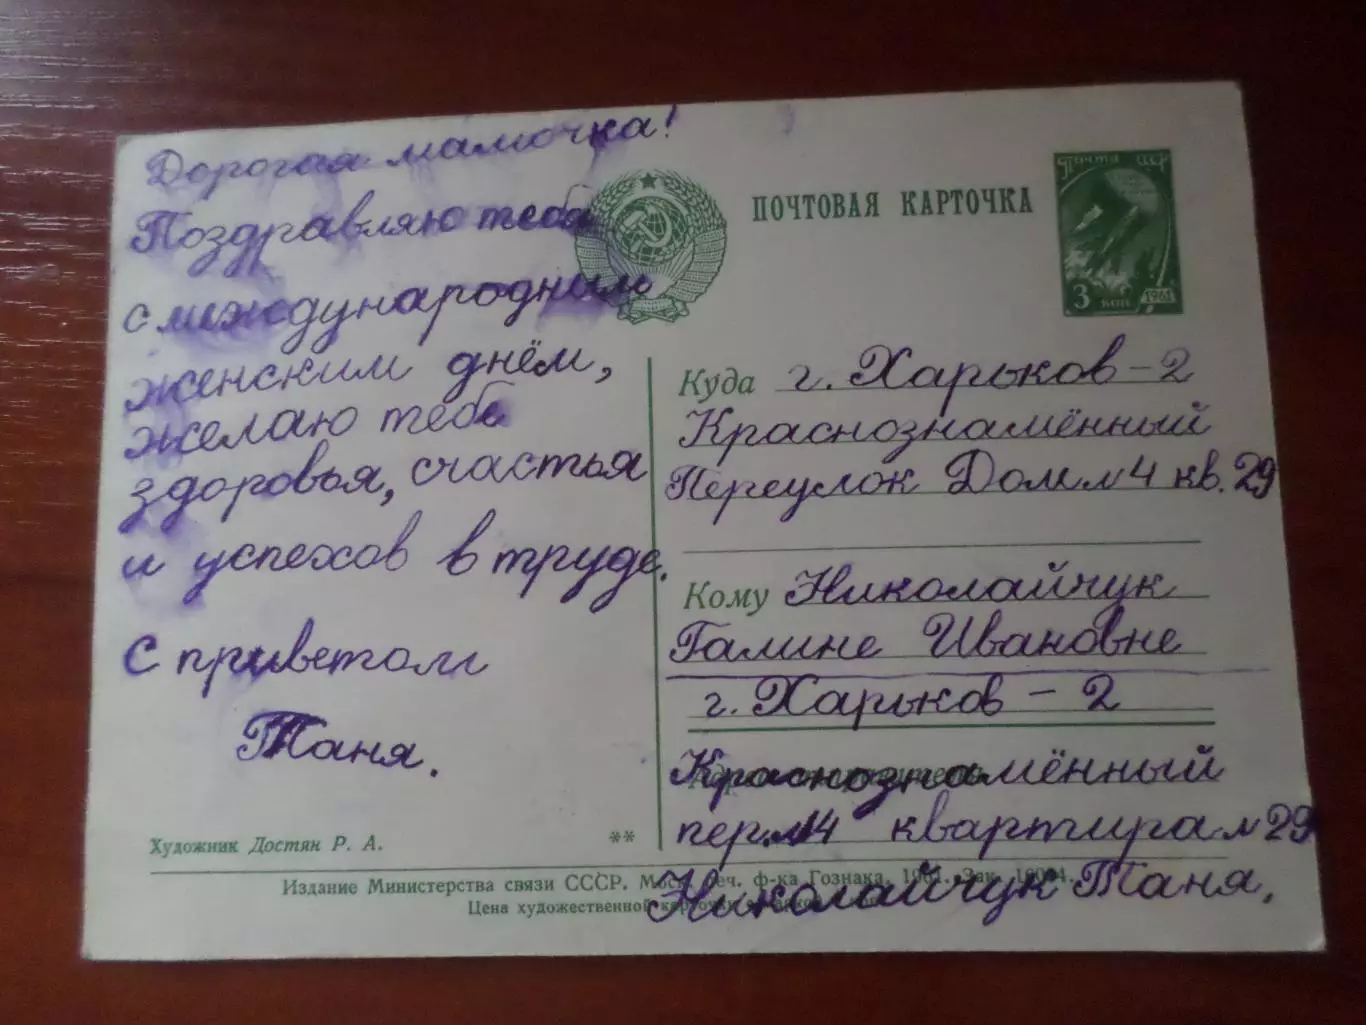 Дорогая мамочка!
Поздравляю тебя
с международным
женским днём,
желаю тебе
здоровья, счастья
и успехов в труде.
С приветом
Таня.
Художник Достян Р. А.
**
ПОЧТОВАЯ КАРТОЧКА
Почта СССР
3 коп 1961
Куда г. Харьков-2
Краснознамённый
Переулок Дом №4 кв. 29
Кому Николайчук
Галине Ивановне
г. Харьков - 2
Краснознамённый
пер. №4 квартира №29
Николайчук Таня.
Издание Министерства связи СССР. Моск. печ. ф-ка Гознака, 1961. Зак.
Цена художественной карточки